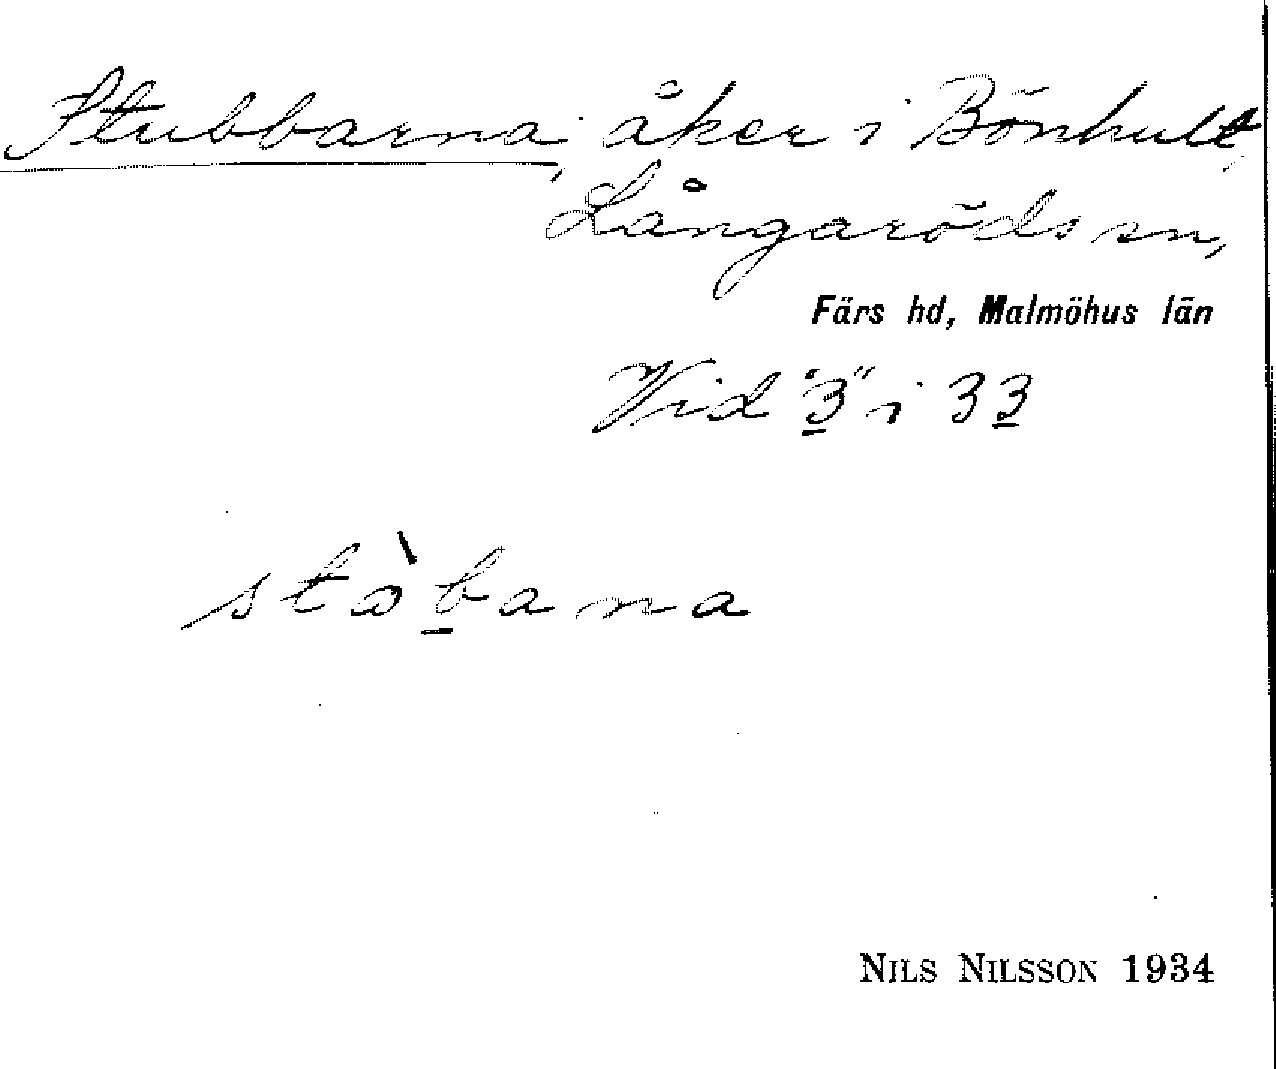 Stubbarna, åker i Bönhult,
Långaröds sn,
Färs hd, Malmöhus län
Vid "3" i 33
stò̱bana
NILS NILSSON 1934